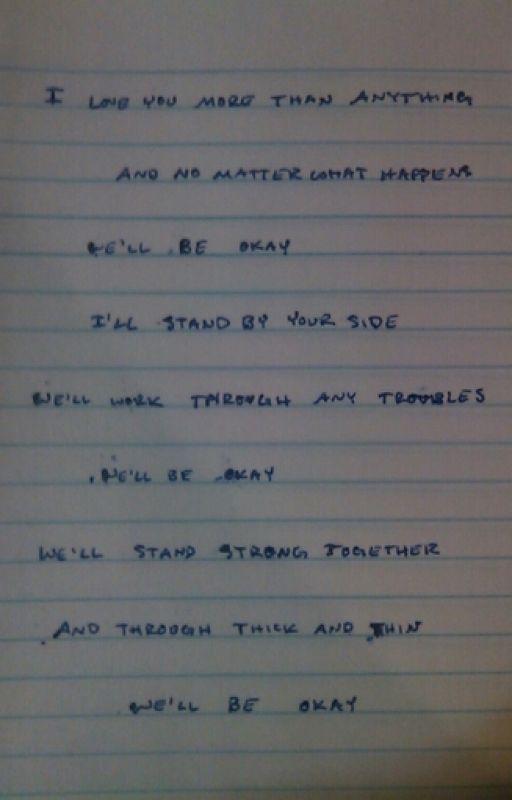 I LOVE YOU MORE THAN ANYTHING
AND NO MATTER WHAT HAPPENS
WE'LL BE OKAY
I'LL STAND BY YOUR SIDE
WE'LL WORK THROUGH ANY TROUBLES
WE'LL BE OKAY
WE'LL STAND STRONG TOGETHER
AND THROUGH THICK AND THIN
WE'LL BE OKAY